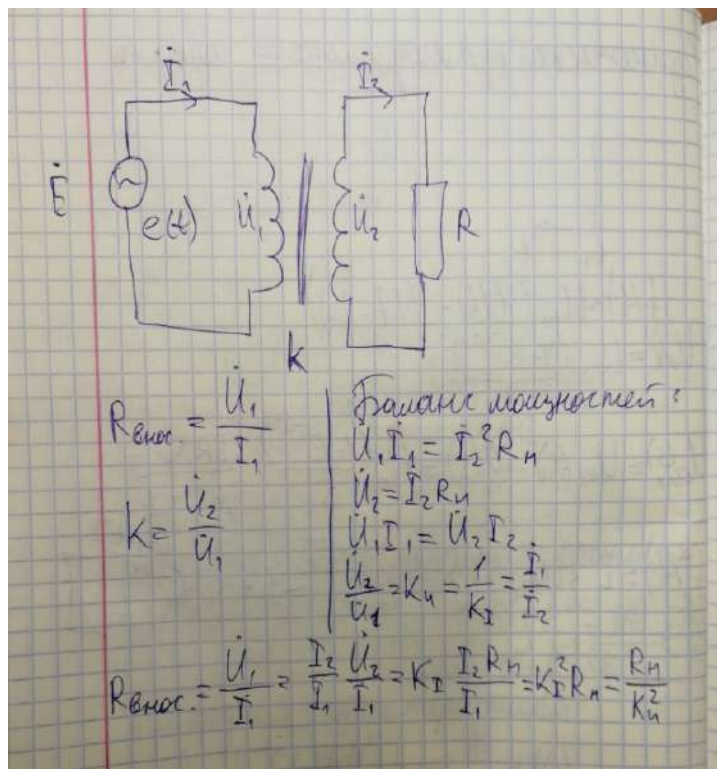 İ₁ İ₂
Ė e(t) U̇₁ U̇₂ R
k
Rвнос. = U̇₁/İ₁
k = U̇₂/U̇₁
Баланс мощностей:
U̇₁İ₁ = İ₂²Rн
U̇₂ = İ₂Rн
U̇₁I₁ = U̇₂I₂
U̇₂/U₁ = Kи = 1/K_I = İ₁/İ₂
Rвнос. = U̇₁/İ₁ = I₂/I₁ U̇₂/İ₁ = K_I I₂Rн/I₁ = K_I²Rн = Rн/Kи²